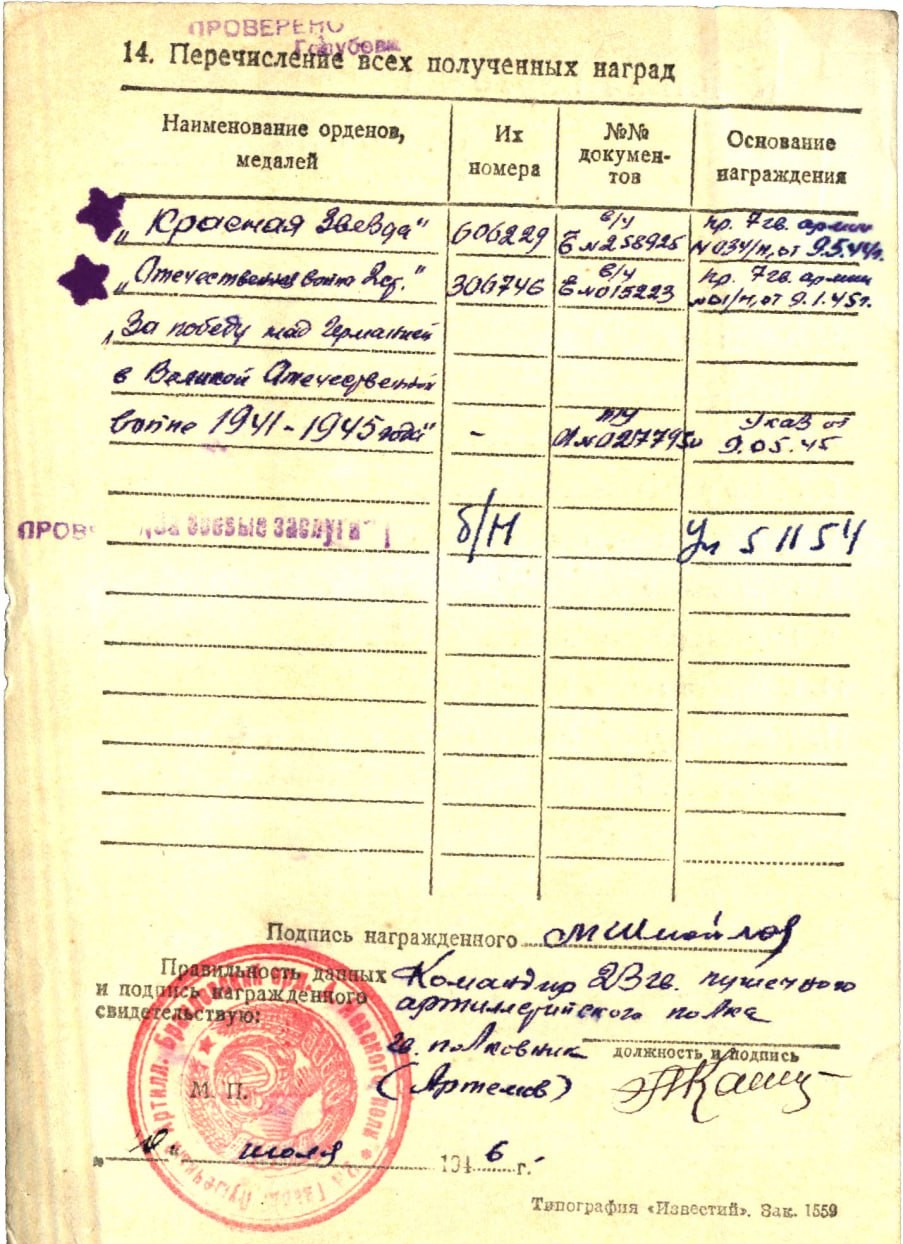 ПРОВЕРЕНО
14. Перечисление всех полученных наград
Наименование орденов, медалей
Их номера
№№ докумен-тов
Основание награждения
„Красная Звезда“ 606229 в/ч Е № 258925 пр. 7 гв. армии № 034/н, от 9.5.44г.
„Отечественная война 2 ст.“ 306746 в/ч Е № 015223 пр. 7 гв. армии № 01/н, от 9.1.45г.
„За победу над Германией
в Великой Отечественной
войне 1941 - 1945 года“ - № 0277950 Указ от 9.05.45
ПРОВЕ „За боевые заслуги“ б/н Ук 5 11 54
Подпись награжденного
Правильность данных
и подпись награжденного
свидетельствую:
Командир 23 гв. пушечного
артиллерийского полка
гв. полковник
должность и подпись
(Артемов)
М. П.
июля 1946 г.
Типография «Известий». Зак. 1559